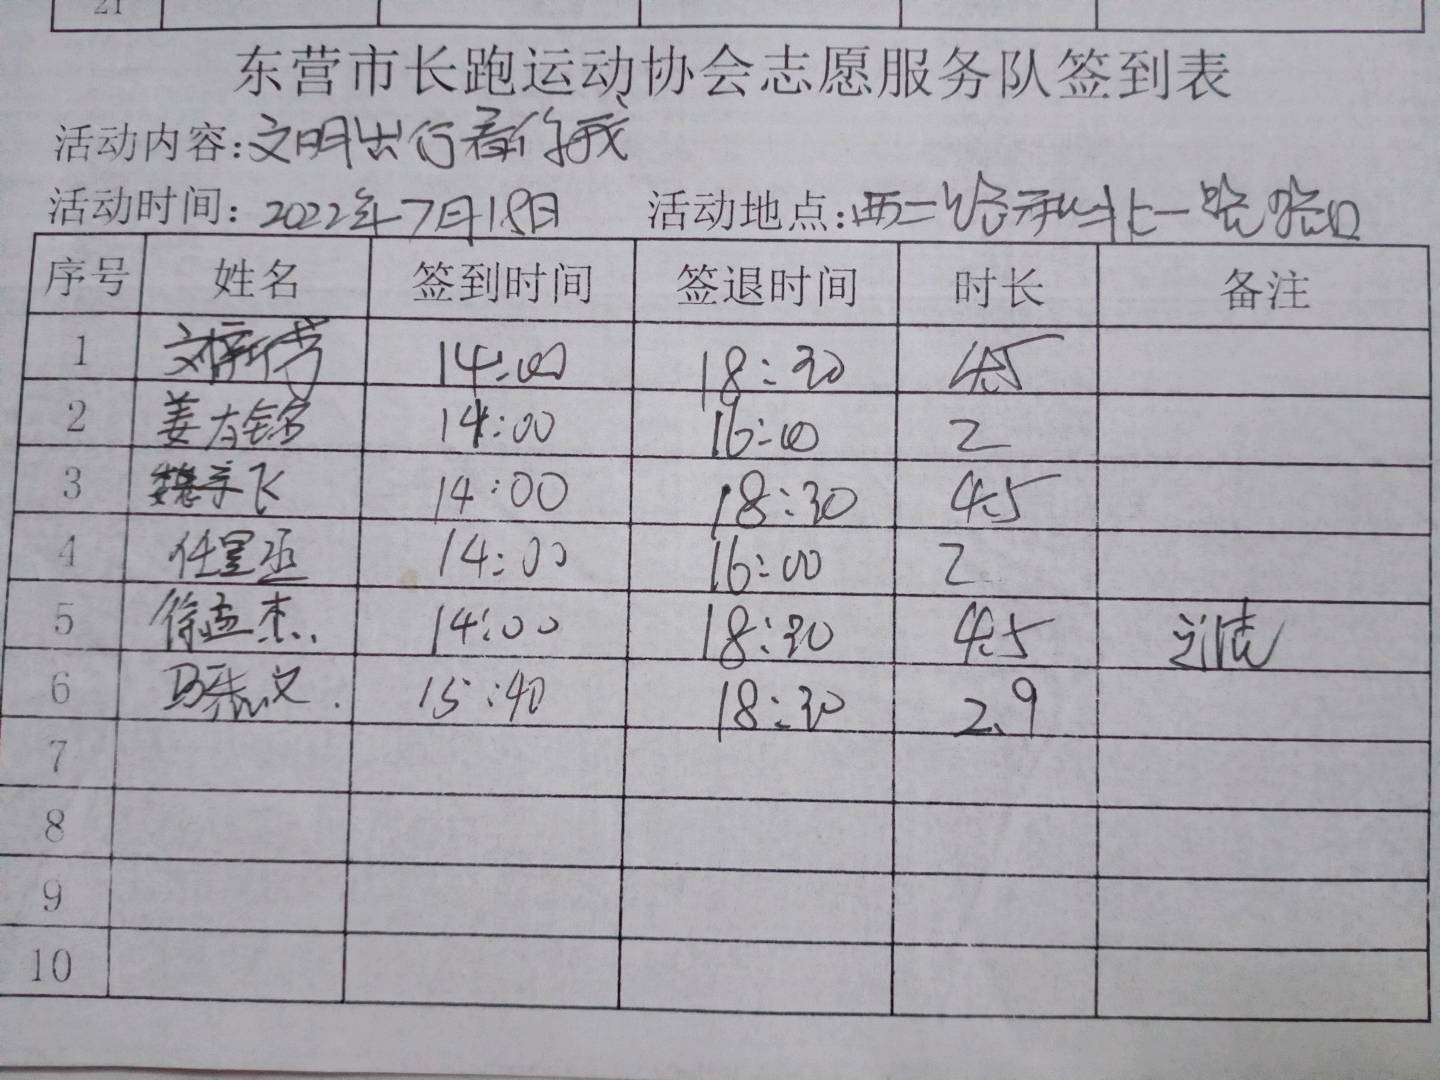 21
东营市长跑运动协会志愿服务队签到表
活动内容:文明出行看你我
活动时间:2022年7月18日 活动地点:西二路和北一路路口
序号 姓名 签到时间 签退时间 时长 备注
1 14:00 18:30 4.5
2 姜友铭 14:00 16:00 2
3 魏辛飞 14:00 18:30 4.5
4 任星丞 14:00 16:00 2
5 徐孟杰 14:00 18:30 4.5
6 15:40 18:30 2.9
7
8
9
10